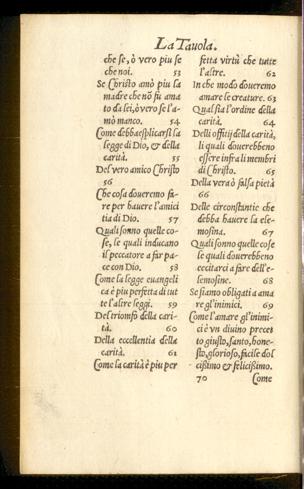 La Tavola.
che se, ò vero piu se
che noi. 53
Se Christo amò piu la
madre che nõ fù ama
to da lei, ò ver se l'a-
mò manco. 54
Come debbaesplicarsi la
legge di Dio, & della
carità. 55
Del vero amico Christo
56
Che cosa doueremo fa-
re per hauere l'amici
tia di Dio. 57
Quali sonno quelle co-
se, le quali inducano
il peccatore a far pa-
ce con Dio. 58
Come la legge euangeli
ca è piu perfetta di tut
te l'altre leggi. 59
Del triomfo della cari-
tà. 60
Della eccellentia della
carità. 61
Come la carità è piu per
fetta virtù che tutte
l'altre. 62
In che modo doueremo
amare le creature. 63
Qual sia l'ordine della
carità. 64
Delli offitij della carità,
li quali douerebbeno
essere infra li membri
di Christo. 65
Della vera ò falsa pietà
66
Delle circonstantie che
debba hauere la ele-
mosina. 67
Quali sonno quelle cose
le quali douerebbeno
eccitarci a fare dell'e-
lemosine. 68
Se siamo obligati a ama
re gl'inimici. 69
Come l'amare gl'inimi-
ci è vn diuino precet
to giusto, santo, hone-
sto, glorioso, facile dol
cißimo & felicißimo.
70 Come